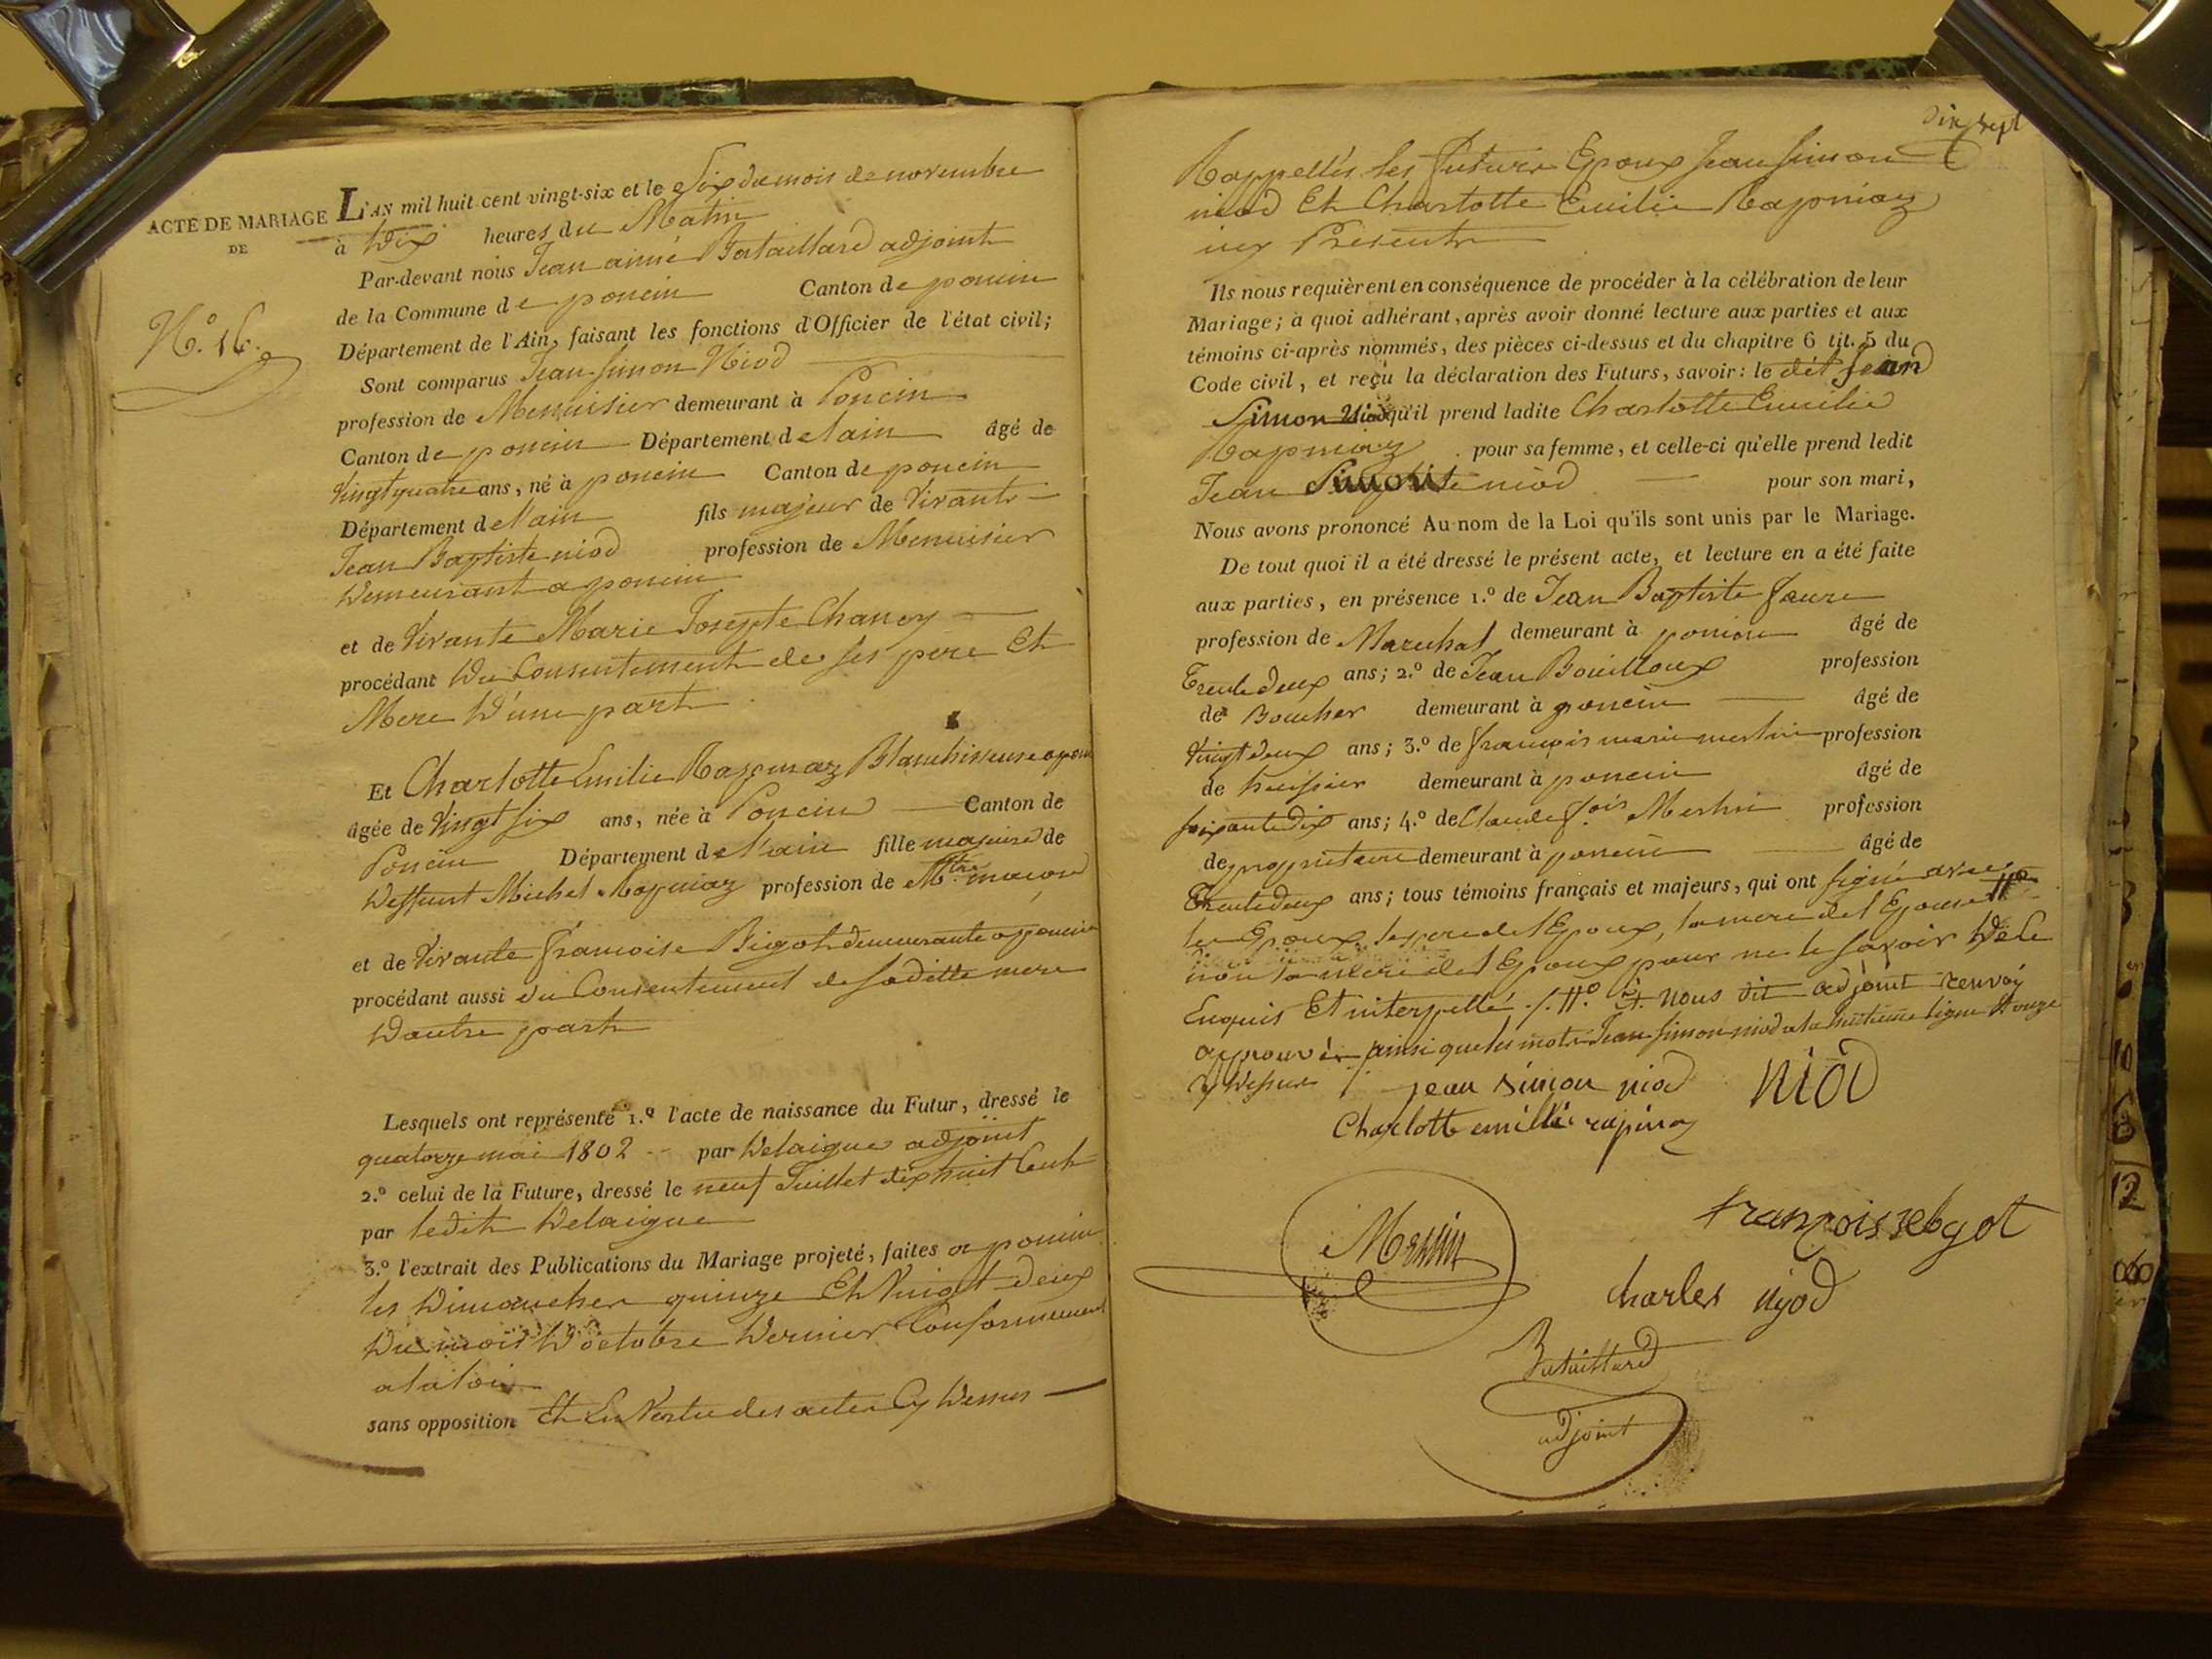 ACTE DE MARIAGE
DE
N.º 16.
L'AN mil huit cent vingt-six et le Six du mois de novembre
à Dix heures du Matin
Par-devant nous Jean aimé Bataillard adjoint
de la Commune de poncin Canton de poncin
Département de l'Ain, faisant les fonctions d'Officier de l'état civil;
Sont comparus Jean Simon Niod
profession de Menuisier demeurant à Poncin
Canton de poncin Département de lain âgé de
Vingt quatre ans, né à poncin Canton de poncin
Département de l'ain fils majeur de Vivants
Jean Baptiste niod profession de Menuisier
Demeurant a poncin
et de Vivante Marie Josepte Chanoy
procédant Du Consentement de ses pere Et
Mere D'une part
Et Charlotte Emilie Rapinaz Blanchisseuse a
âgée de Vingt six ans, née à Poncin Canton de
Poncin Département de l'ain fille majeure de
Deffunt Michel Rapinaz profession de M.tre macon
et de Vivante françoise Bigot demeurante a poncin
procédant aussi du Consentement de saditte mere
Dautre part
Lesquels ont représenté 1.º l'acte de naissance du Futur, dressé le
quatorze mai 1802 par Delaigue adjoint
2.º celui de la Future, dressé le neuf Juillet dix huit Cent
par ledit Delaigue
3.º l'extrait des Publications du Mariage projeté, faites a poncin
les Dimanches quinze Et Vingt deux
Du mois D'octobre Dernier Conformement
a la loi
sans opposition Et En Vertu des actes Cy Dessus
Dix sept
Rappellés les futurs Epoux Jean Simon
niod Et Charlotte Emilie Rapinaz
icy Présents
Ils nous requièrent en conséquence de procéder à la célébration de leur
Mariage; à quoi adhérant, après avoir donné lecture aux parties et aux
témoins ci-après nommés, des pièces ci-dessus et du chapitre 6 tit. 5 du
Code civil, et reçu la déclaration des Futurs, savoir: le dit Jean
Simon Niod qu'il prend ladite Charlotte Emilie
Rapinaz pour sa femme, et celle-ci qu'elle prend ledit
Jean Simon niod pour son mari,
Nous avons prononcé Au nom de la Loi qu'ils sont unis par le Mariage.
De tout quoi il a été dressé le présent acte, et lecture en a été faite
aux parties, en présence 1.º de Jean Baptiste faure
profession de Marechal demeurant à poncin âgé de
Trente deux ans; 2.º de Jean Bouilloux profession
de Boucher demeurant à poncin âgé de
Vingt deux ans; 3.º de françois marie merlin profession
de huissier demeurant à poncin âgé de
soixante dix ans; 4.º de Claude fois Merlin profession
de propriétaire demeurant à poncin âgé de
Trente deux ans; tous témoins français et majeurs, qui ont signé avec
les Epoux, le pere de l'Epoux, la mere de l'Epouse
non la mere de l'Epoux pour ne le savoir De ce
Enquis Et interpellé ./. Et nous dit adjoint renvoy
approuvés ainsi que les mots Jean Simon niod a la huitieme ligne & onze
cy Dessus
jean simon niod niod
Charlotte emillie rapinaz
Merlin
françoisse bgot
charles niod
Bataillard
adjoint